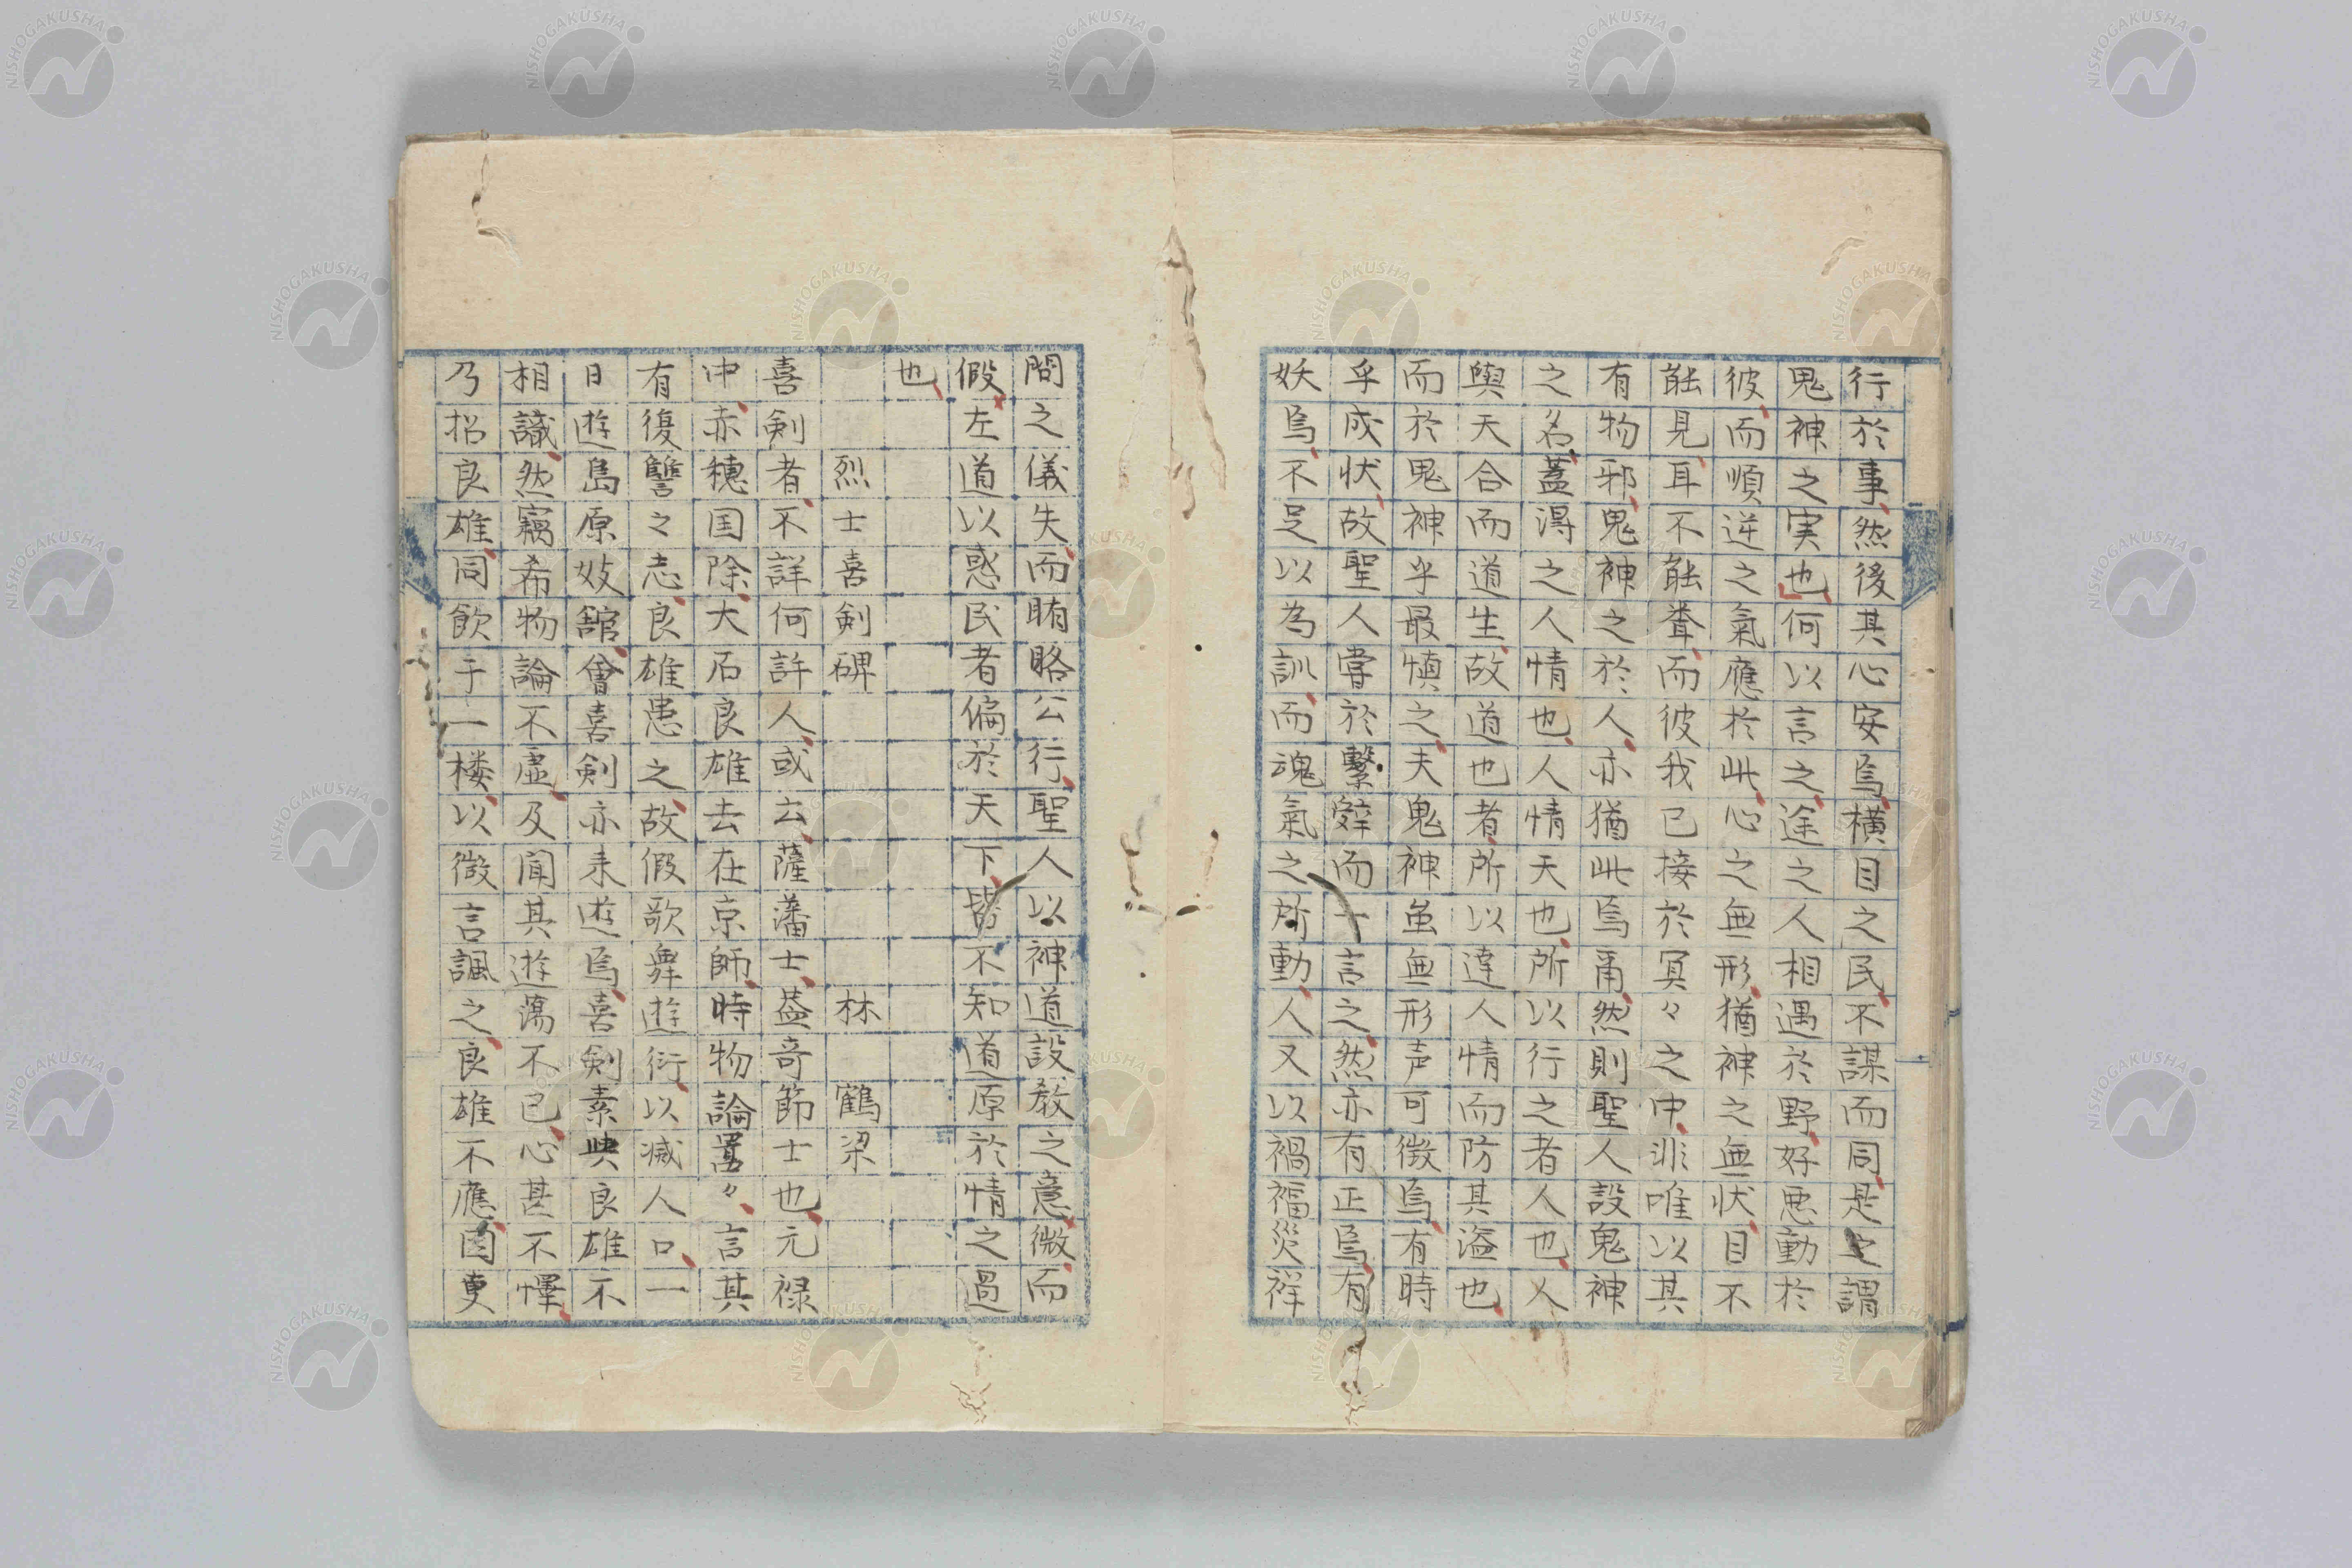 行於事然後其心安焉横目之民不謀而同是之謂
鬼神之実也何以言之途之人相遇於野好悪動於
彼而順逆之氣應於此心之無形猶神之無状目不
能見耳不能聋而彼我已接於冥々之中非唯以其
有物邪鬼神之於人亦猶此焉甬然則聖人設鬼神
之名蓋得之人情也人情天也所以行之者人也人
與天合而道生故道也者所以達人情而防其溢也
而於鬼神乎最慎之夫鬼神虽無形声可徴焉有時
乎成状故聖人嘗於繫辞而一言之然亦有正焉有
妖焉不足以為訓而魂氣之所動人又以禍福災祥
問之儀失而賄賂公行聖人以神道設教之意微而
假左道以惑民者偏於天下皆不知道原於情之過
也
烈士喜剣碑 林 鶴梁
喜剣者不詳何許人或云薩藩士蓋奇節士也元禄
中赤穂国除大石良雄去在京師時物論囂々言其
有復讐之志良雄患之故假歌舞遊衍以滅人口一
日遊島原妓舘會喜剣亦来遊焉喜剣素與良雄不
相識然竊希物論不虚及聞其遊蕩不已心甚不懌
乃招良雄同飲于一楼以微言諷之良雄不應因更
NISHOGAKUSHA